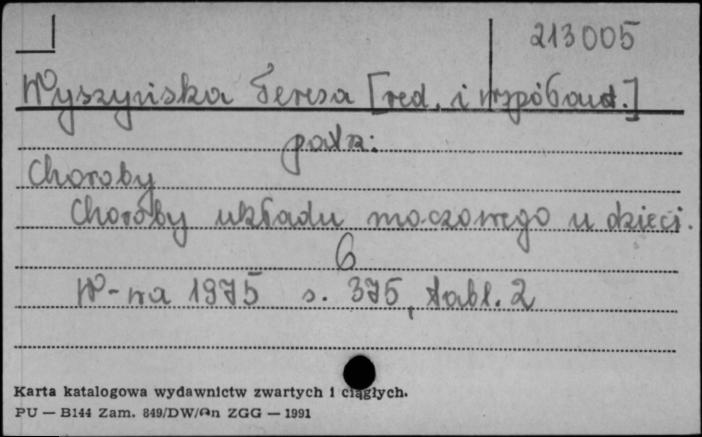 213005
Wyszyńska Teresa [red. i współaut.]
patrz:
Choroby
Choroby układu moczowego u dzieci.
6
W-wa 1975 s. 375, tabl. 2
Karta katalogowa wydawnictw zwartych i ciągłych.
PU — B144 Zam. 849/DW/On ZGG — 1991